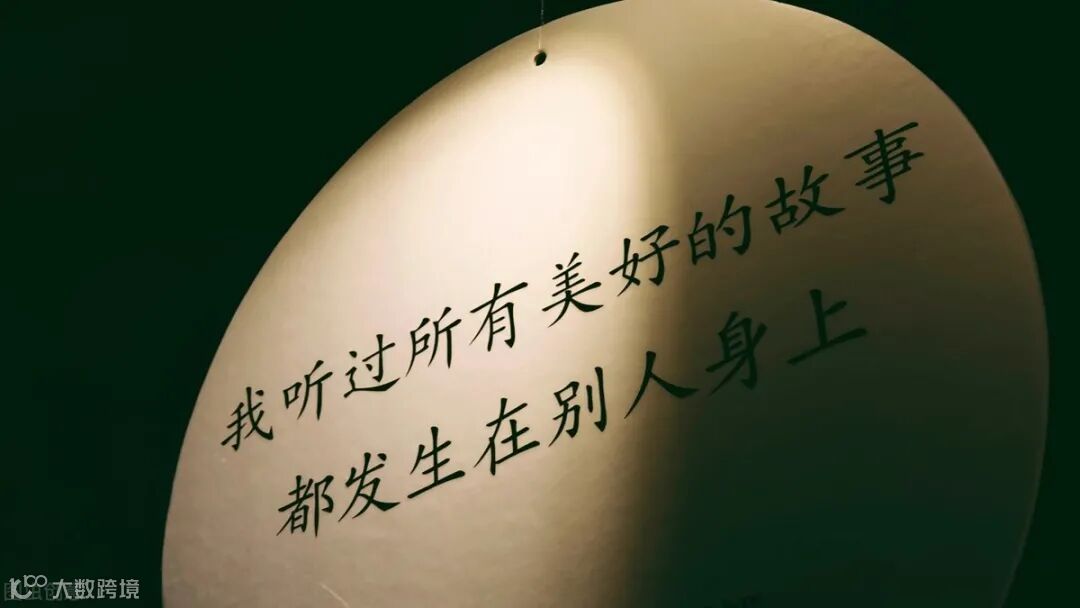 我听过所有美好的故事
都发生在别人身上
大数跨境